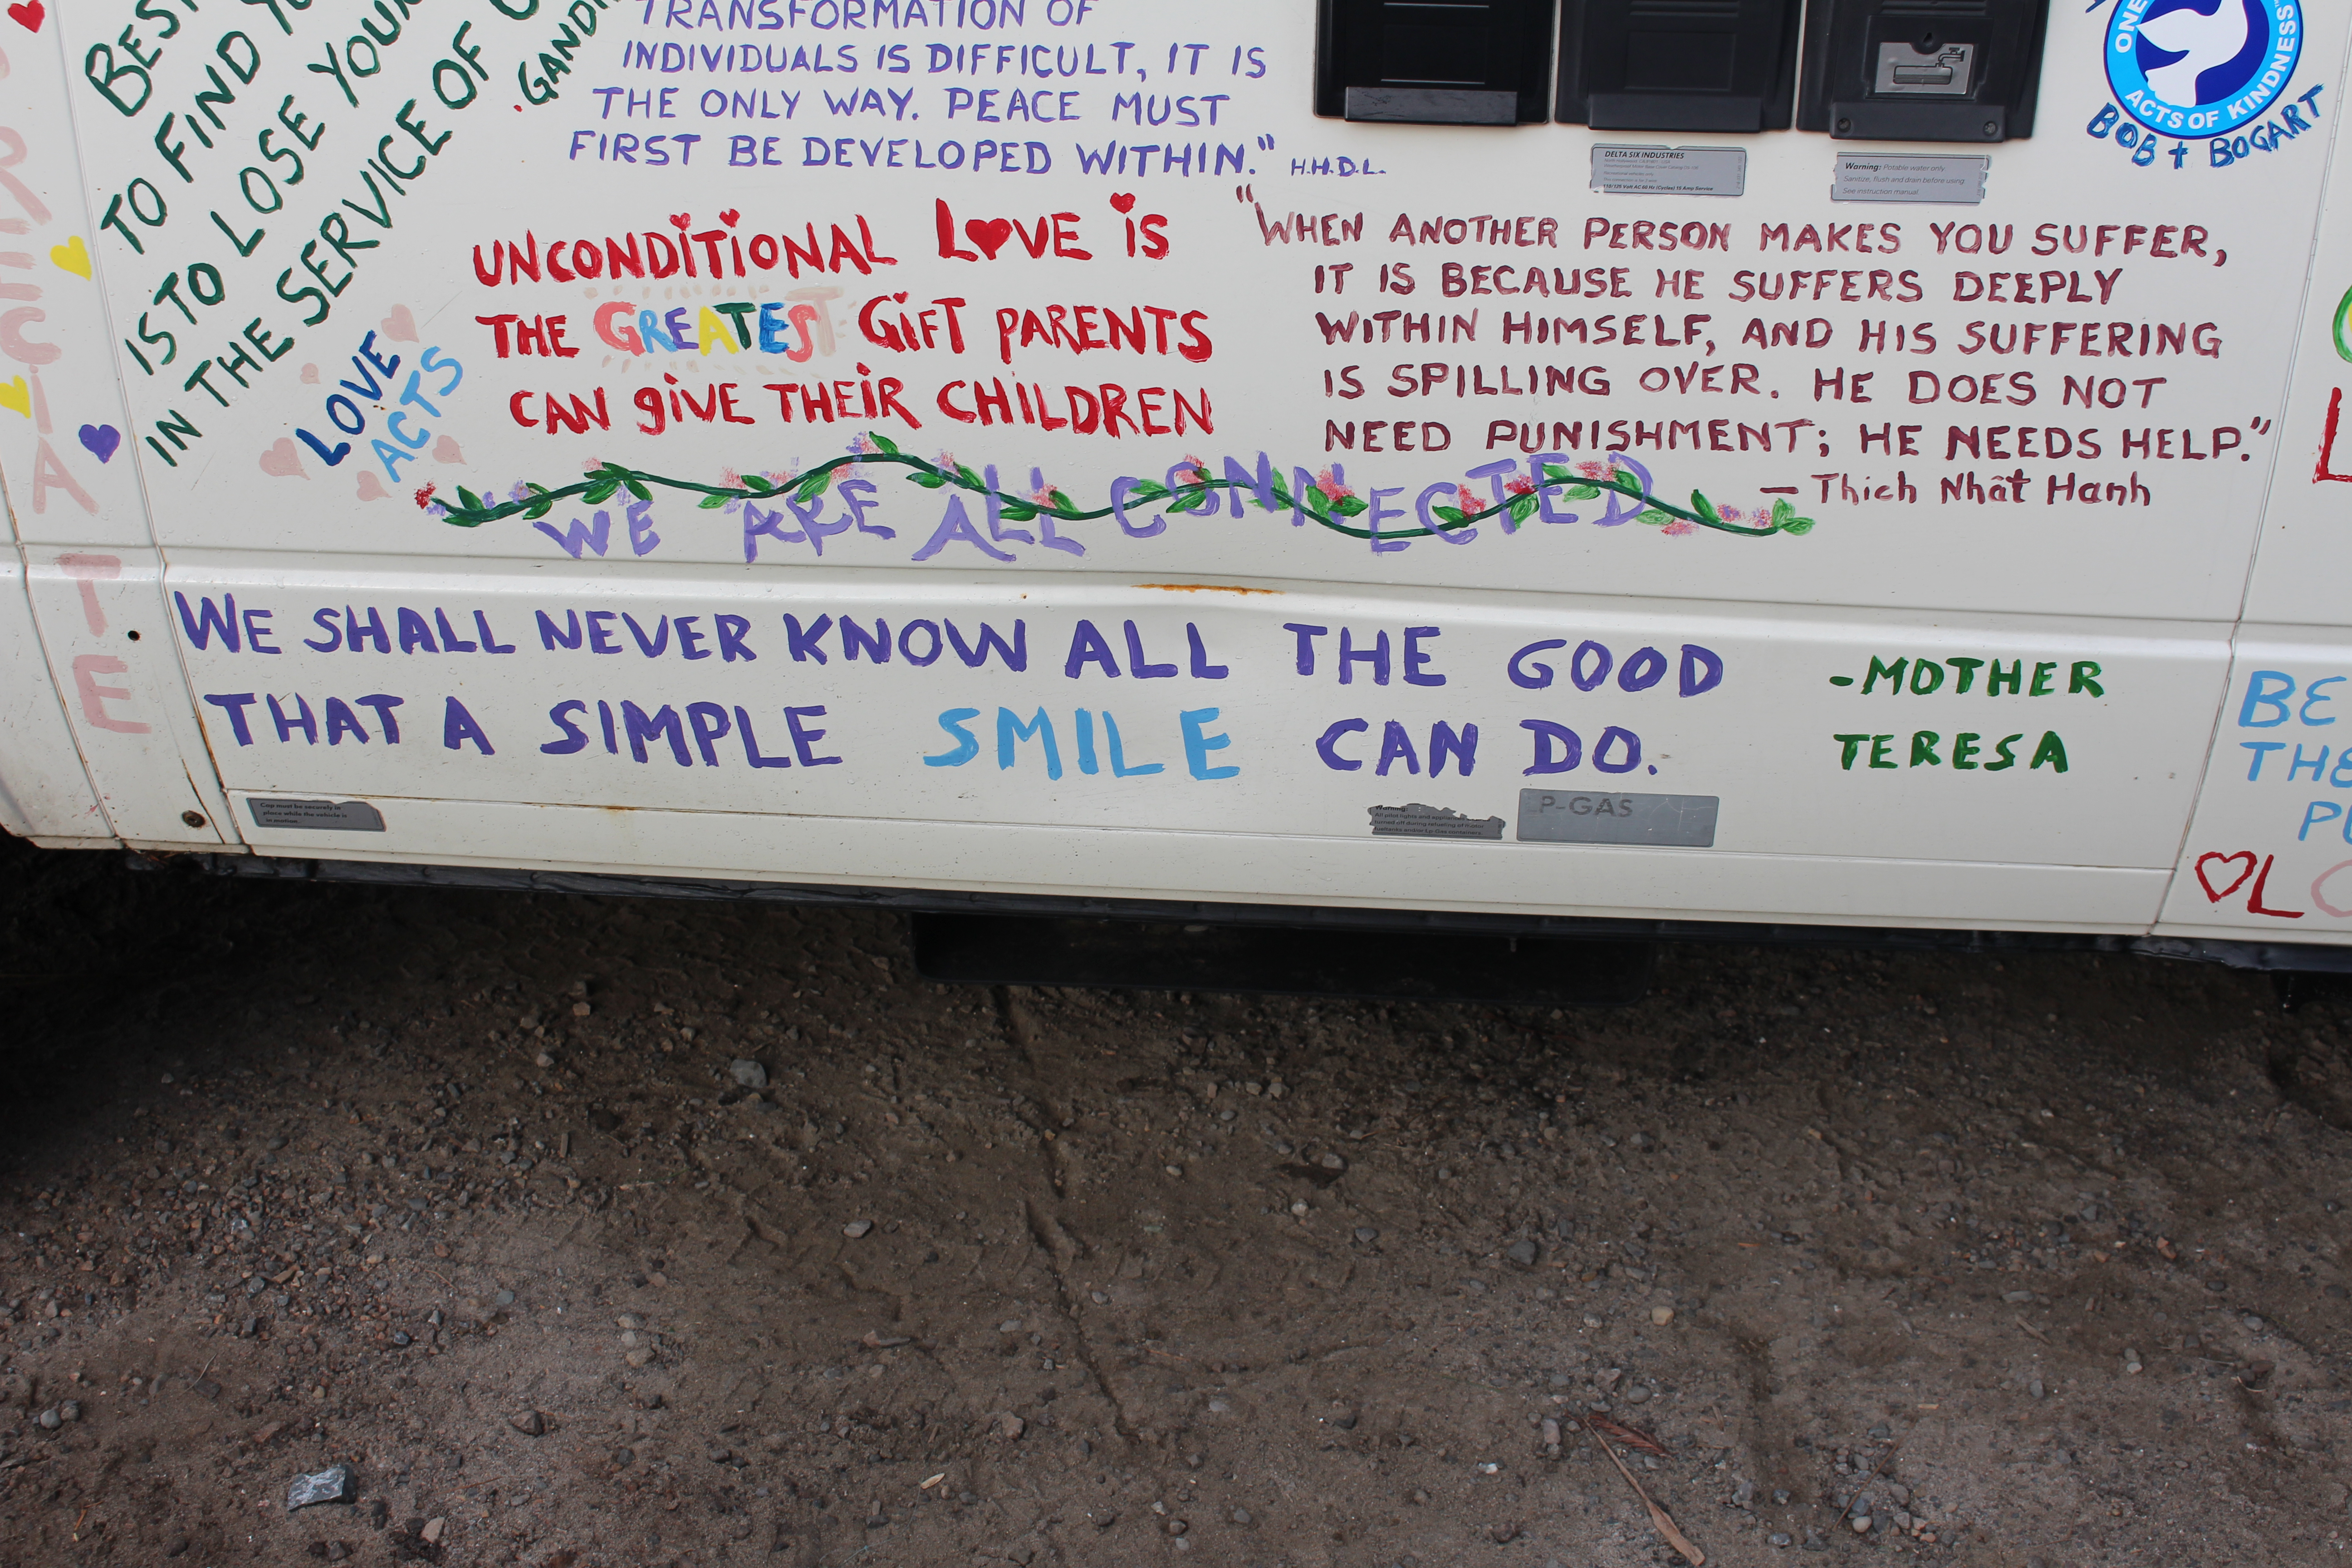 BEST
TO FIND
IS TO LOSE
IN THE SERVICE OF
TRANSFORMATION OF
INDIVIDUALS IS DIFFICULT, IT IS
THE ONLY WAY. PEACE MUST
FIRST BE DEVELOPED WITHIN." H.H.D.L.
ONE
ACTS OF KINDNESS
BOB + BOGART
DELTA SIX INDUSTRIES
Warning: Potable water only.
Sanitize, flush and drain before using.
See instruction manual.
LOVE
ACTS
UNCONDITIONAL LOVE IS
THE GREATEST GIFT PARENTS
CAN GIVE THEIR CHILDREN
"WHEN ANOTHER PERSON MAKES YOU SUFFER,
IT IS BECAUSE HE SUFFERS DEEPLY
WITHIN HIMSELF, AND HIS SUFFERING
IS SPILLING OVER. HE DOES NOT
NEED PUNISHMENT; HE NEEDS HELP."
— Thich Nhât Hanh
WE ARE ALL CONNECTED
WE SHALL NEVER KNOW ALL THE GOOD
THAT A SIMPLE SMILE CAN DO.
-MOTHER
TERESA
Cap must be securely in
place while the vehicle is
in motion.
P-GAS
BE